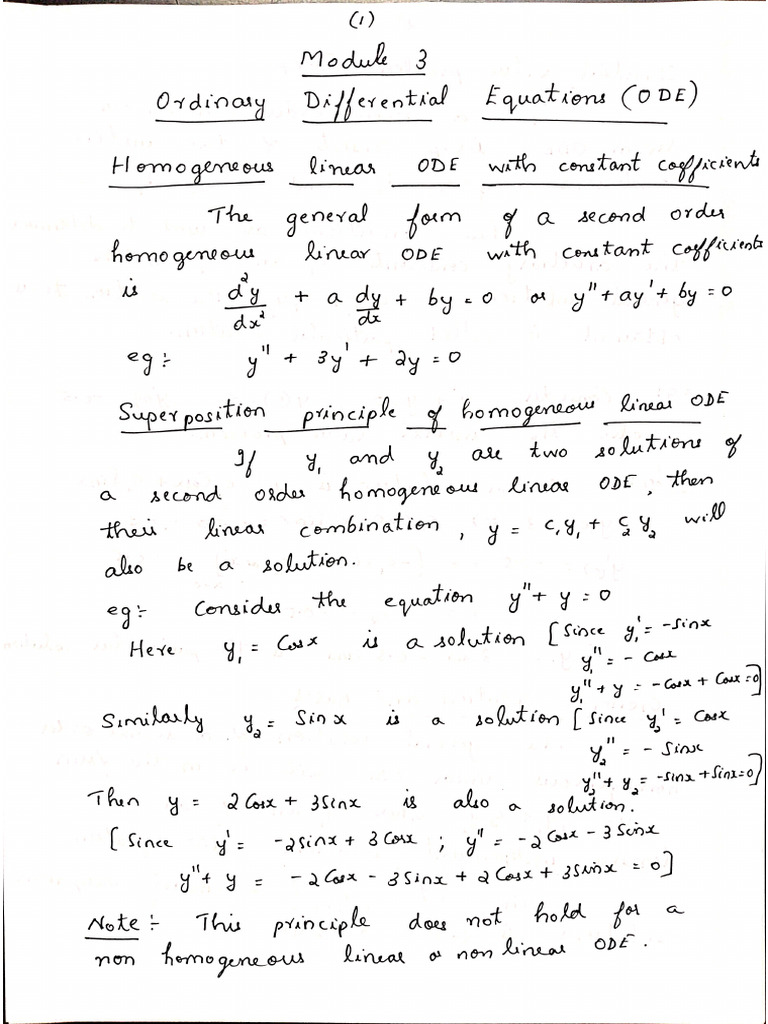 (1)
Module 3
Ordinary Differential Equations (ODE)
Homogeneous linear ODE with constant coefficients
The general form of a second order
homogeneous linear ODE with constant coefficients
is d²y/dx² + a dy/dx + by = 0 or y" + ay' + by = 0
eg:- y" + 3y' + 2y = 0
Superposition principle of homogeneous linear ODE
If y₁ and y₂ are two solutions of
a second order homogeneous linear ODE, then
their linear combination, y = c₁y₁ + c₂y₂ will
also be a solution.
eg:- Consider the equation y" + y = 0
Here y₁ = Cosx is a solution [Since y₁' = -Sinx
y₁" = - Cosx
y₁" + y = -Cosx + Cosx = 0]
Similarly y₂ = Sinx is a solution [Since y₂' = Cosx
y₂" = - Sinx
y₂" + y₂ = -Sinx + Sinx = 0]
Then y = 2Cosx + 3Sinx is also a solution.
[Since y' = -2Sinx + 3Cosx ; y" = -2Cosx - 3Sinx
y" + y = -2Cosx - 3Sinx + 2Cosx + 3Sinx = 0]
Note:- This principle does not hold for a
non homogeneous linear or non linear ODE.